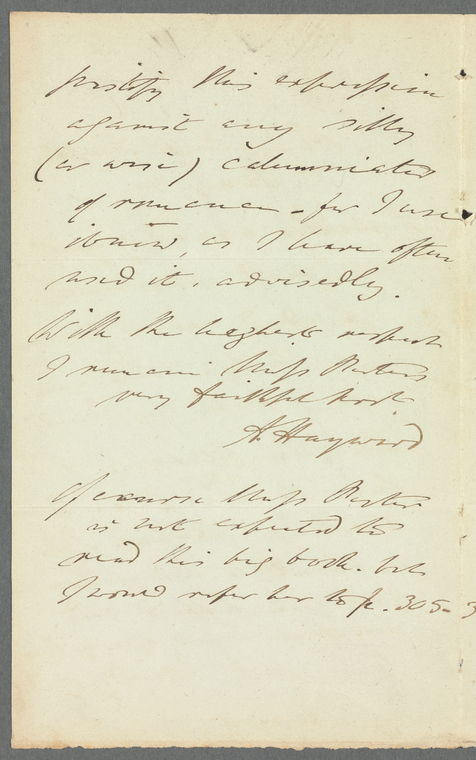 justify this expression
against any silly
(or wise) calumniator
of romance - for I use
it now, as I have often
used it, advisedly.
With the highest respect
I remain Miss Porter's
very faithful
A. Hayward
Of course Miss Porter
is not expected to
read this big book. but
I would refer her to p. 305-3